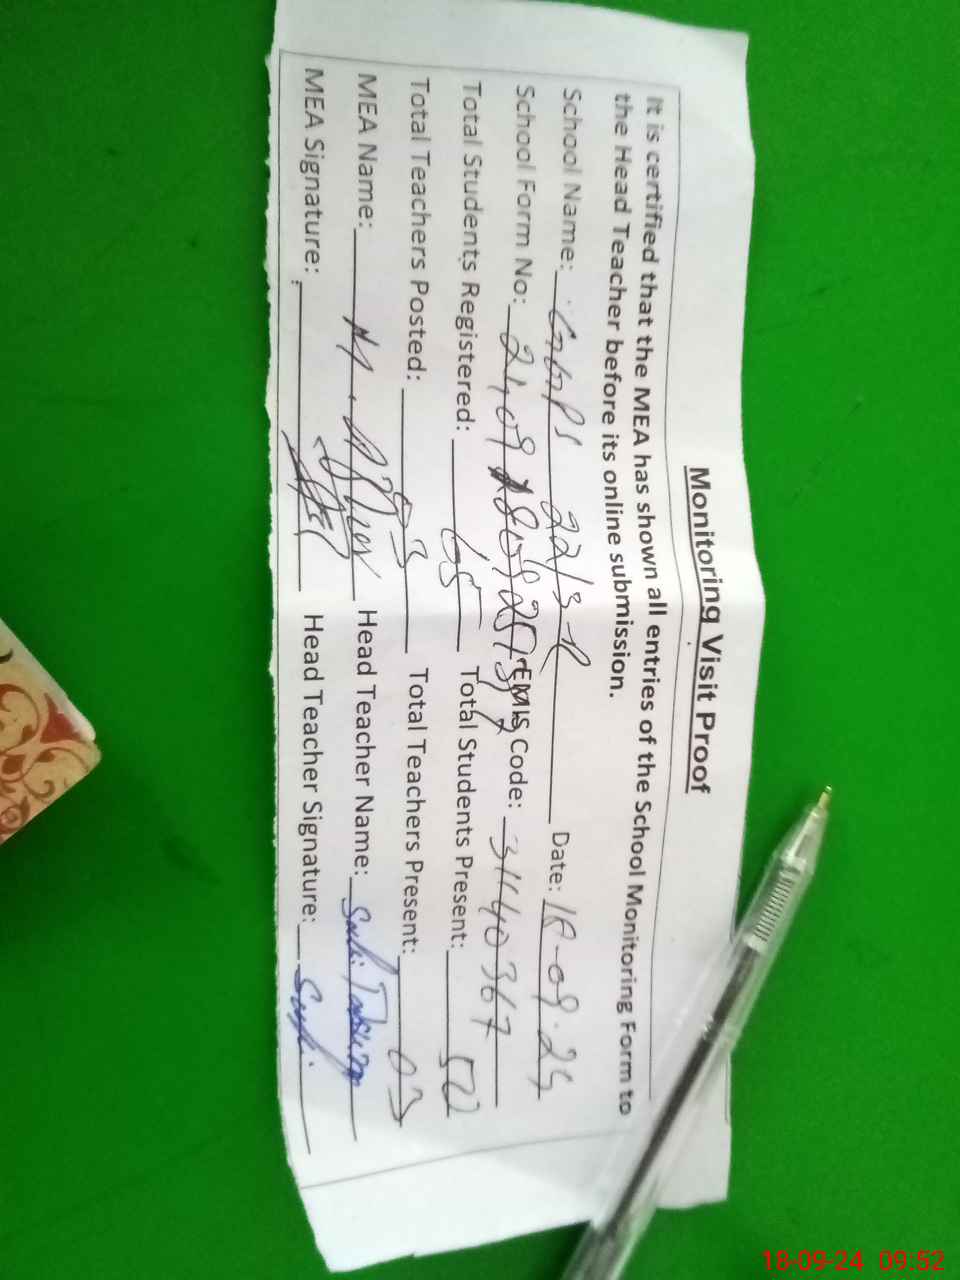 Monitoring Visit Proof
It is certified that the MEA has shown all entries of the School Monitoring Form to
the Head Teacher before its online submission.
School Name: GGPS 22/3-R Date: 18-09-24
School Form No: EMIS Code: 31140367
Total Students Registered: 65 Total Students Present: 52
Total Teachers Posted: 03 Total Teachers Present: 03
MEA Name: Head Teacher Name:
MEA Signature: Head Teacher Signature:
18-09-24 09:52